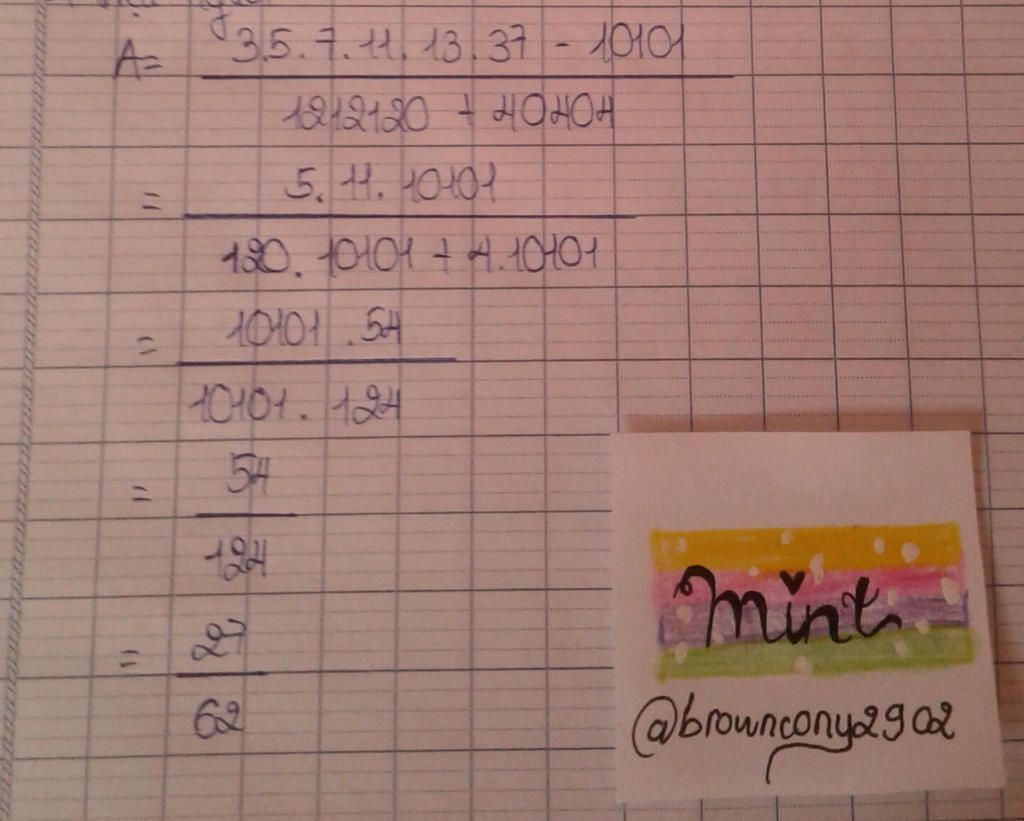 A= 3.5.7.11.13.37 - 10101
1212120 + 40404
= 5.11.10101
120.10101 + 4.10101
= 10101.54
10101.124
= 54
124
= 27
62
mint
@browncony2902